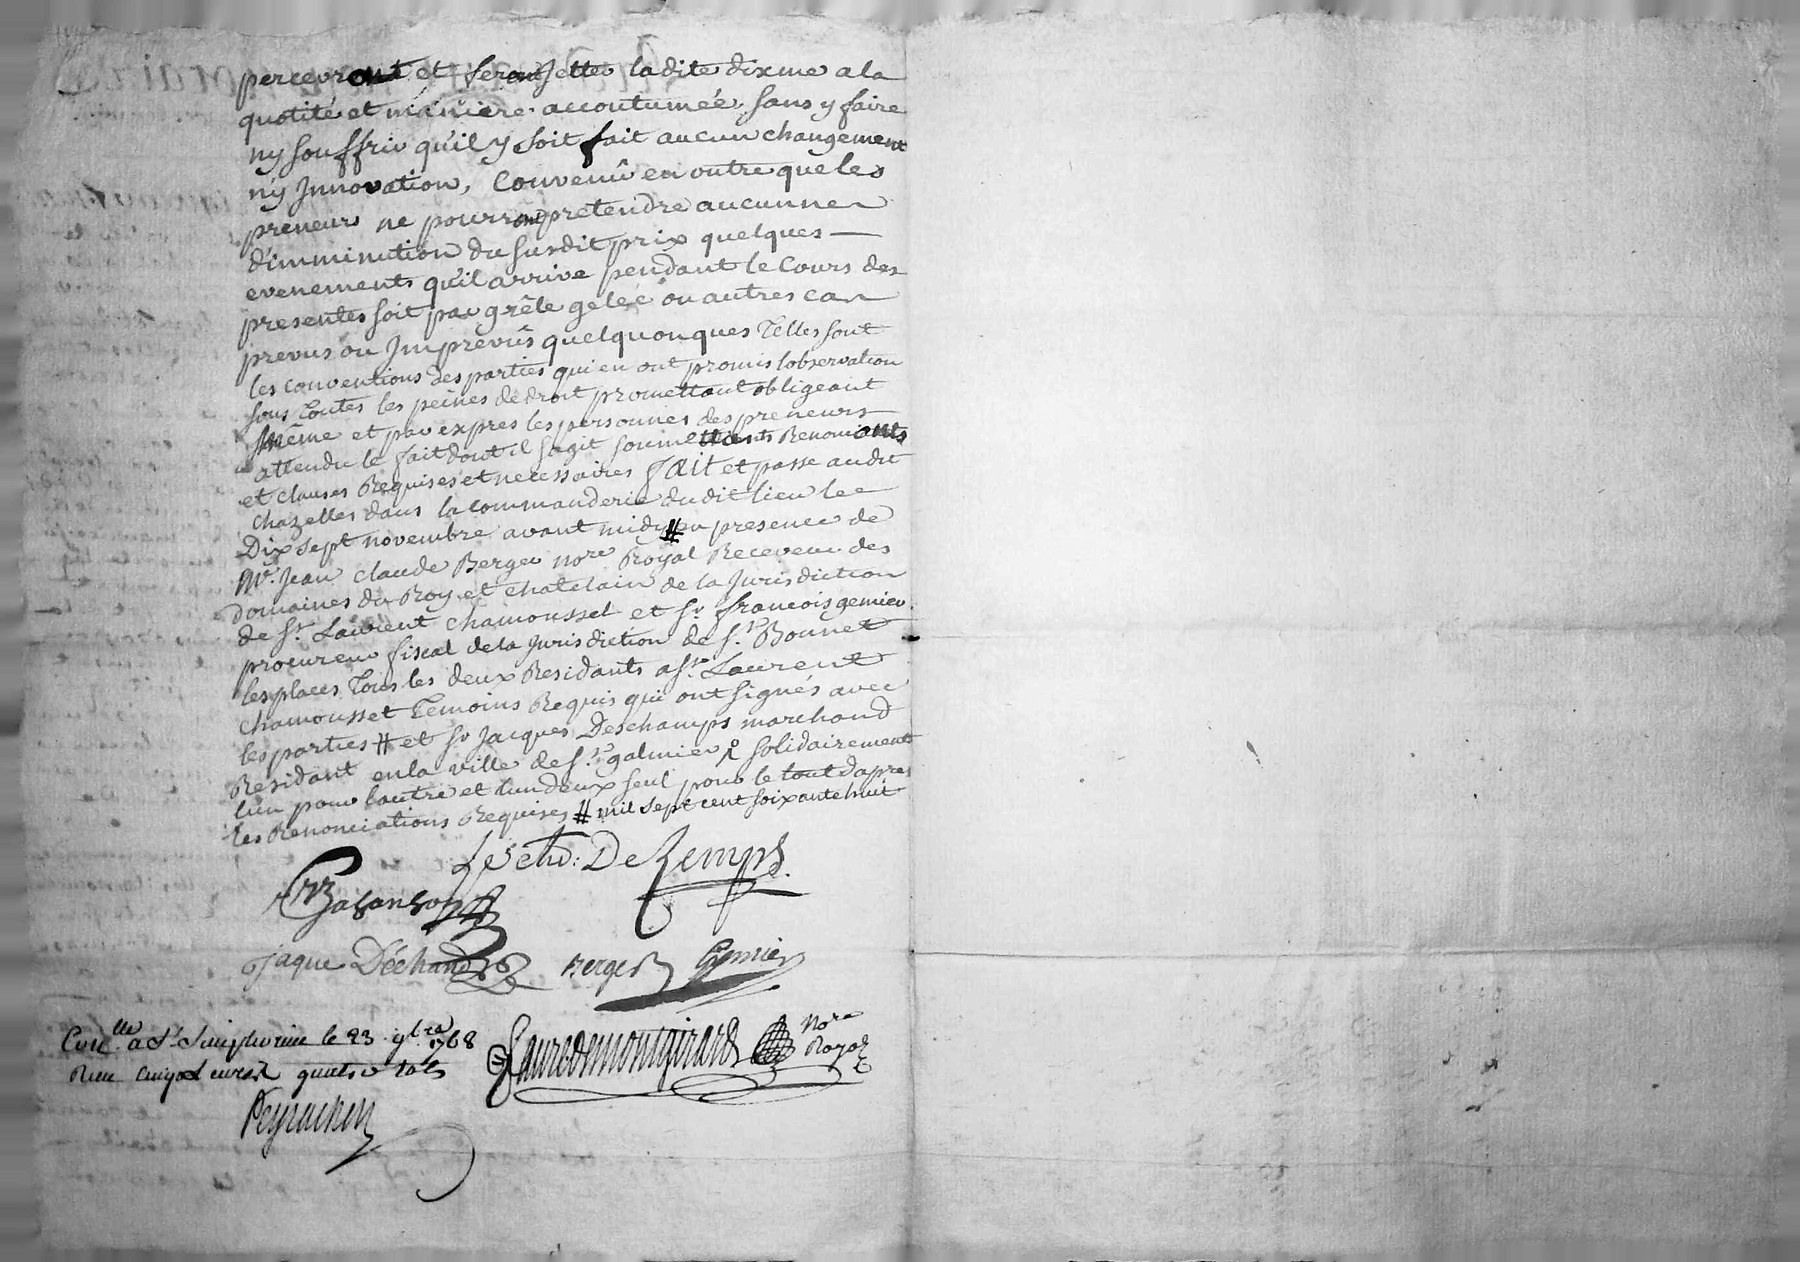 percevront et feront jetter ladite dixme a la
quotité et maniere accoutumée, sans y faire
ny souffrir qu'il y soit fait aucun changement
ny Innovation, Convenû en outre que les
preneurs ne pourront pretendre aucunne
dimminution du susdit prix quelques
evenements qu'il arrive pendant le Cours des
presentes soit par grêle gelée ou autres cas
prevus ou Imprevûs quelquonques Telles sont
les conventions des parties qui en ont promis lobservation
sous Toutes les peines de droit promettant obligeant
même et par expres les personnes des preneurs
attendu le fait dont il sagit soumettants Renonciants
et clauses Requises et necessaires fait et passé audit
Chazelles dans la commanderie dudit lieu le
Dix sept novembre avant midy # en presence de
Mr. Jean Claude Berger nore Royal Receveur des
Domaines du Roy et chatelain de la Jurisdiction
de St. Laurent Chamousset et Sr. francois gemier
procureur fiscal de la Jurisdiction de St. Bonnet
les places Tous les deux Residants a St. Laurent
Chamousset Temoins Requis qui ont signés avec
les parties # et Sr Jacques Deschamps marchand
Residant en la ville de St. galmier solidairement
lun pour lautre et lun deux seul pour le tout dapres
les Renonciations Requises # mil sept cent soixante huit
Le Chr: De
Jaque Déchand Berger Gemier
Conlle a St. Simphorien le 23 9bre 1768
quatre sols
nore
Royal